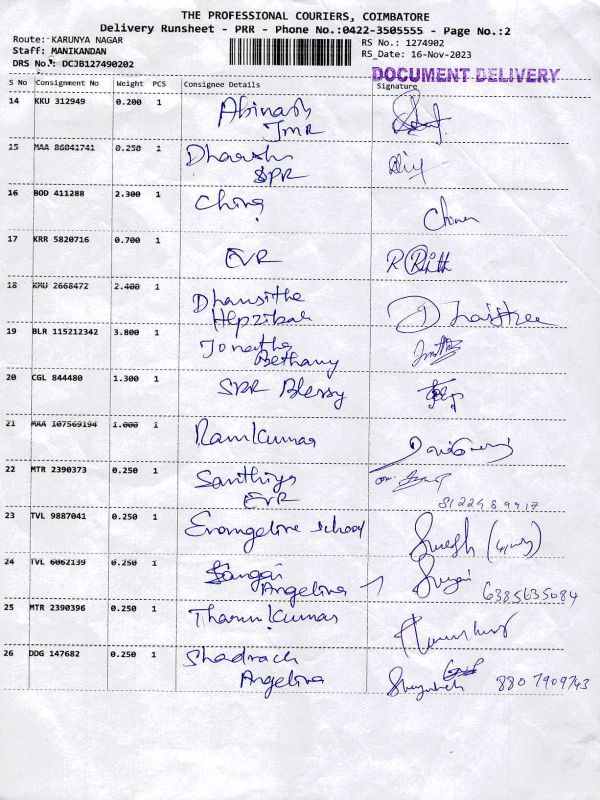 THE PROFESSIONAL COURIERS, COIMBATORE
Delivery Runsheet - PRR - Phone No.:0422-3505555 - Page No.:2
Route: KARUNYA NAGAR
RS No.: 1274902
Staff: MANIKANDAN
RS_Date: 16-Nov-2023
DRS No.: DCJB127490202
DOCUMENT DELIVERY
S No Consignment No Weight PCS Consignee Details Signature
14 KKU 312949 0.200 1 Abinash
JMR
15 MAA 86041741 0.250 1 Dharshi
SPR
16 BOD 411288 2.300 1 Ching
17 KRR 5820716 0.700 1 EVR
18 KMU 2668472 2.400 1 Dhansithe
Hepzibah
19 BLR 115212342 3.800 1 Jonatha
Bethany
20 CGL 844480 1.300 1 SPR Blessy
21 MAA 107569194 1.000 1 Ramkumar
22 MTR 2390373 0.250 1 Santhiya
EVR
23 TVL 9887041 0.250 1 Evangeline school Suresh
24 TVL 6062139 0.250 1
Angelina 6385635084
25 MTR 2390396 0.250 1 Tharun Kumar
26 DDG 147682 0.250 1 Shadrach
Angelina 8807909743